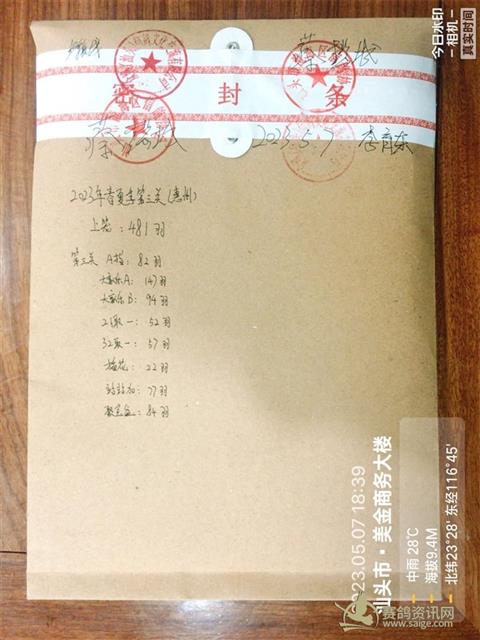 密 封 条
2023.5.7 李育东
2023年春夏季第三关(惠州)
上笼：481羽
第三关 A档：82羽
大家乐A：147羽
大家乐B：94羽
21取一：52羽
32取一：57羽
梅花：22羽
站站加：77羽
聚宝盆：84羽
今日水印
-相机-
真实时间
2023.05.07 18:39
汕头市·美金商务大楼
中雨 28℃
海拔9.4M
北纬23°28' 东经116°45'
赛鸽资讯网
www.saige.com